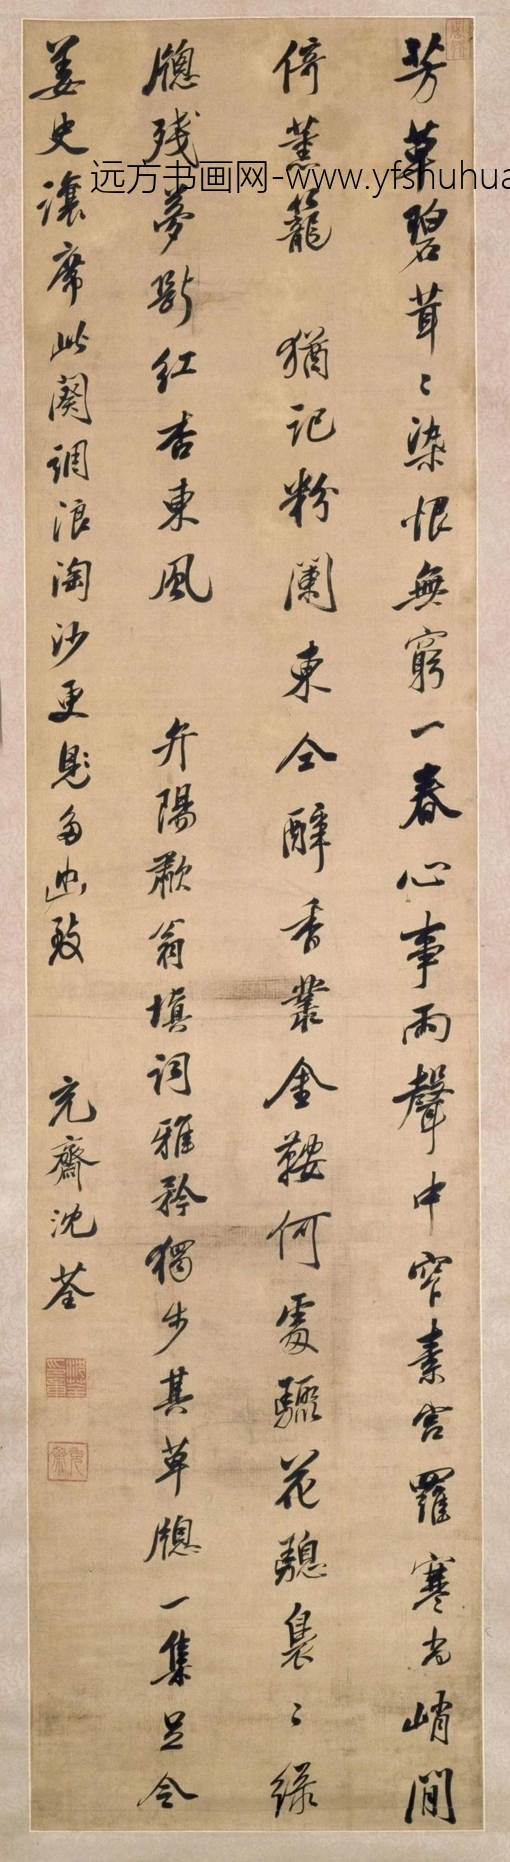 芳草碧茸〻染恨無窮一春心事雨聲中窄素宫羅寒尚峭閒
倚薰籠 猶記粉闌東仝醉香叢金鞍何處驟花驄裊〻緑
牕殘夢斷紅杏東風 弁陽歗翁填詞雅矜獨步其草牕一集足令
姜史讓席此闋調浪淘沙更多幽致 充齋沈荃
远方书画网-www.yfshuhua